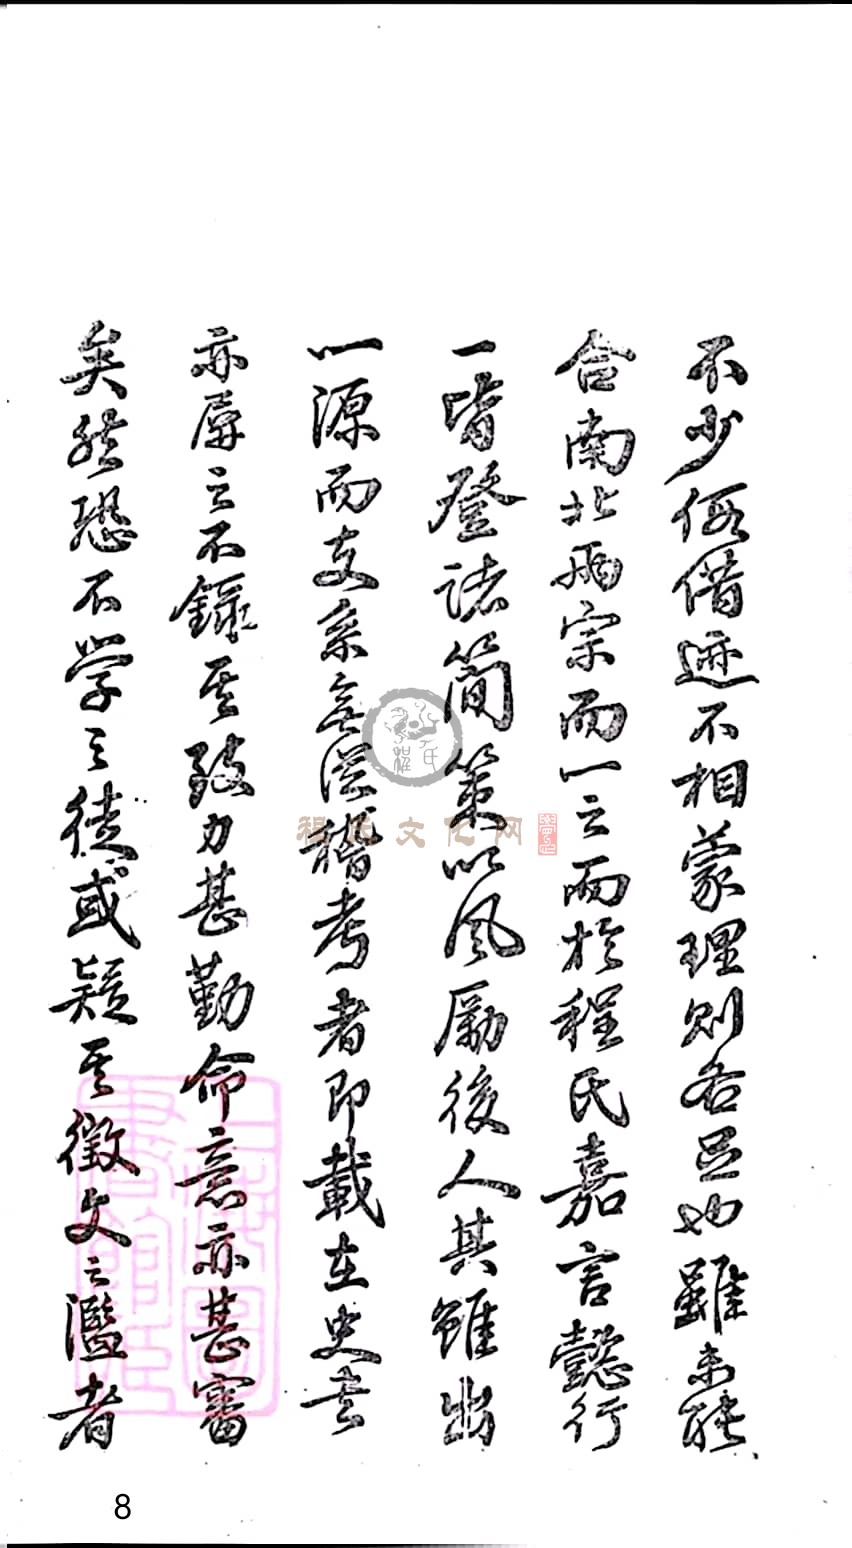 不少假借迹不相蒙理则各足也雖未能
合南北兩宗而一之而於程氏嘉言懿行
一皆登諸簡策以风勵後人其雖出
一源而支系無從稽考者即載在史書
亦屏之不錄其致力甚勤命意亦甚審
矣然恐不学之徒或疑其徵文之濫者
程氏文化网
程氏
上海圖書館藏
8